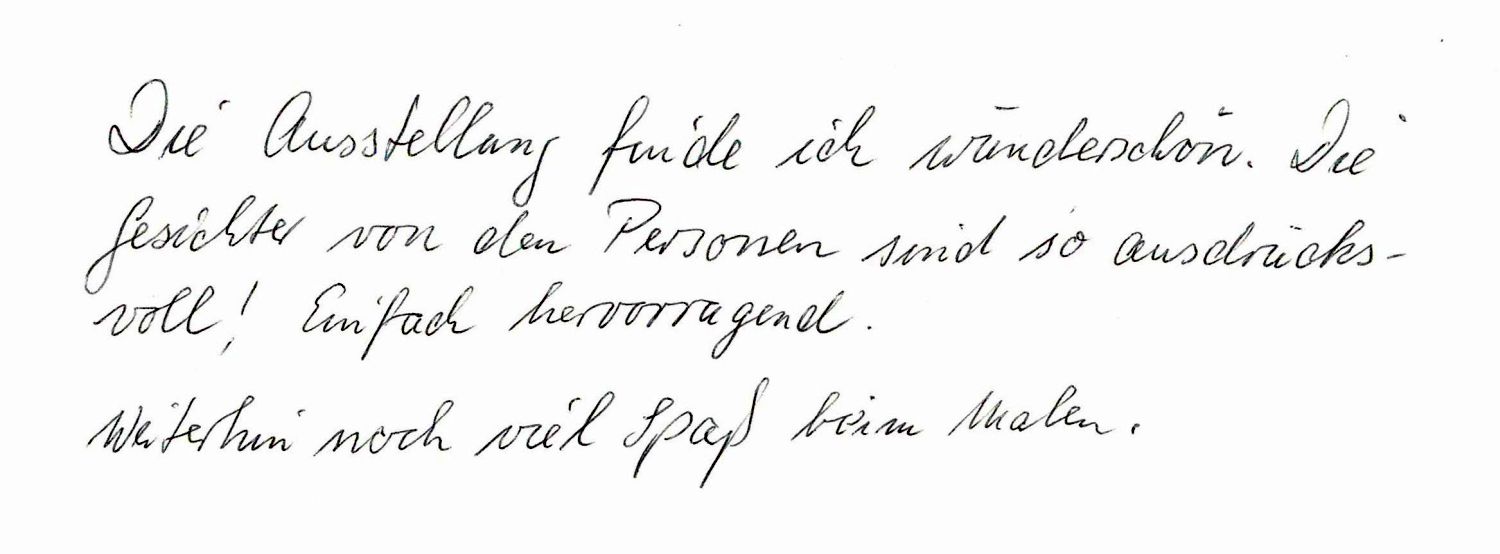 Die Ausstellung finde ich wunderschön. Die
Gesichter von den Personen sind so ausdrucks-
voll! Einfach hervorragend.
Weiterhin noch viel Spaß beim Malen.